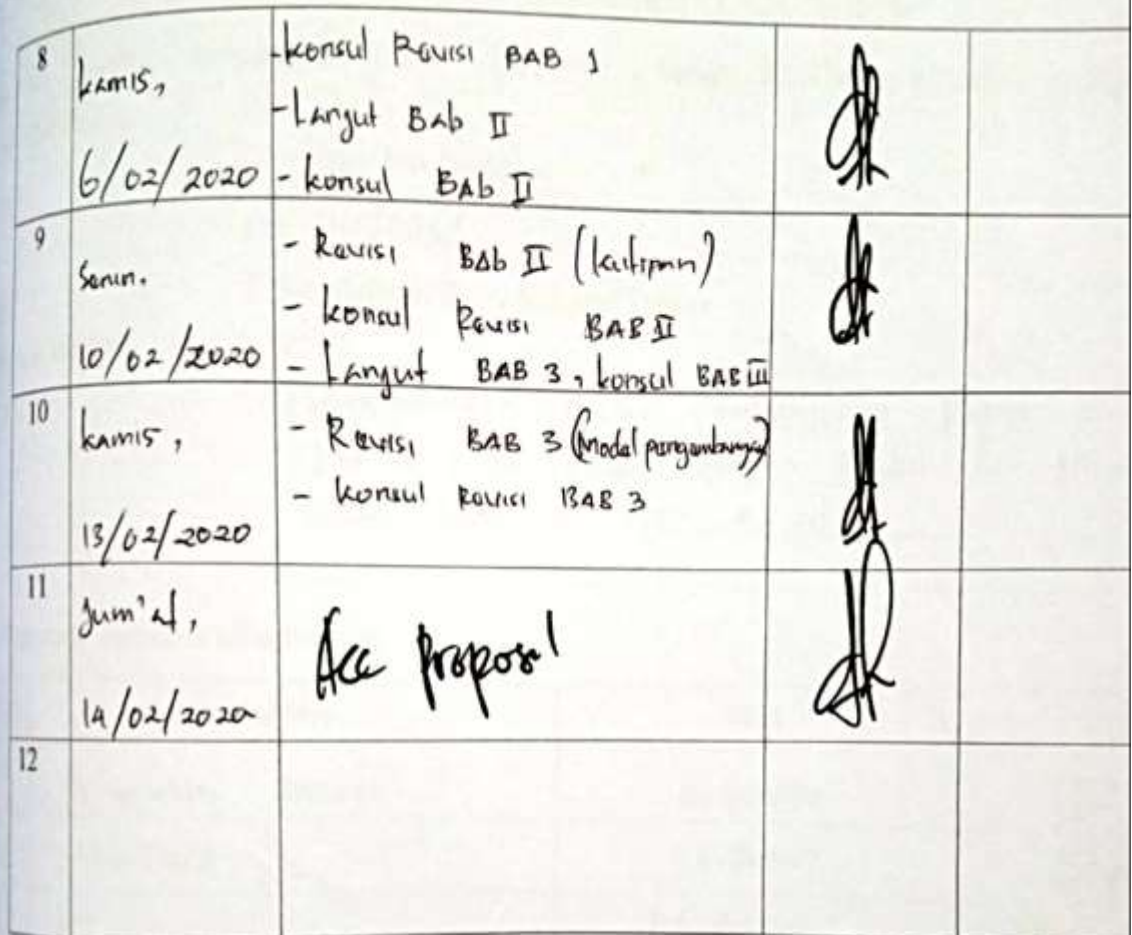 8
kamis,
6/02/2020
- konsul Revisi BAB 1
- Langut Bab II
- konsul BAb II
9
Senin.
10/02/2020
- Revisi BAb II (kutipan)
- konsul Revisi BAB II
- Langut BAB 3, konsul BAB III
10
kamis,
13/02/2020
- Revisi BAB 3 (Model pengembangan)
- konsul Revisi BAB 3
11
Jum'at,
14/02/2020
Acc Proposal
12